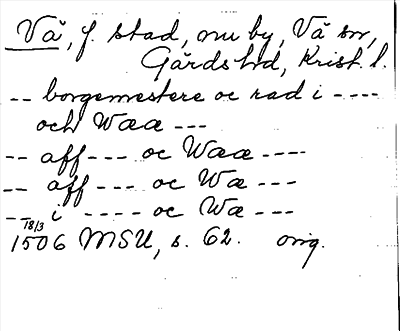 Vä, f. stad, nu by, Vä sn,
Gärds hd, Krist. l.
-- borgemestere oc rad i ----
och Waæ ---
-- aff --- oc Waæ ---
-- aff --- oc Wæ ---
-- i ---- oc Wæ ---
18/3
1506 MSU, s. 62. orig.